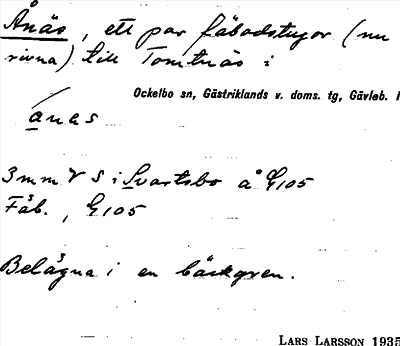 Ånäs, ett par fäbodstugor (nu
rivna) till Tomtnäs i
Ockelbo sn, Gästriklands v. doms. tg, Gävleb. l
ánas
3 mm V S i Svartsbo å G 105
Fäb., G 105
Belägna i en bäckgren.
LARS LARSSON 1935